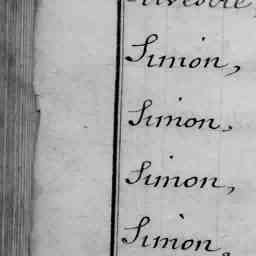 Simon,
Simon,
Simon,
Simon,